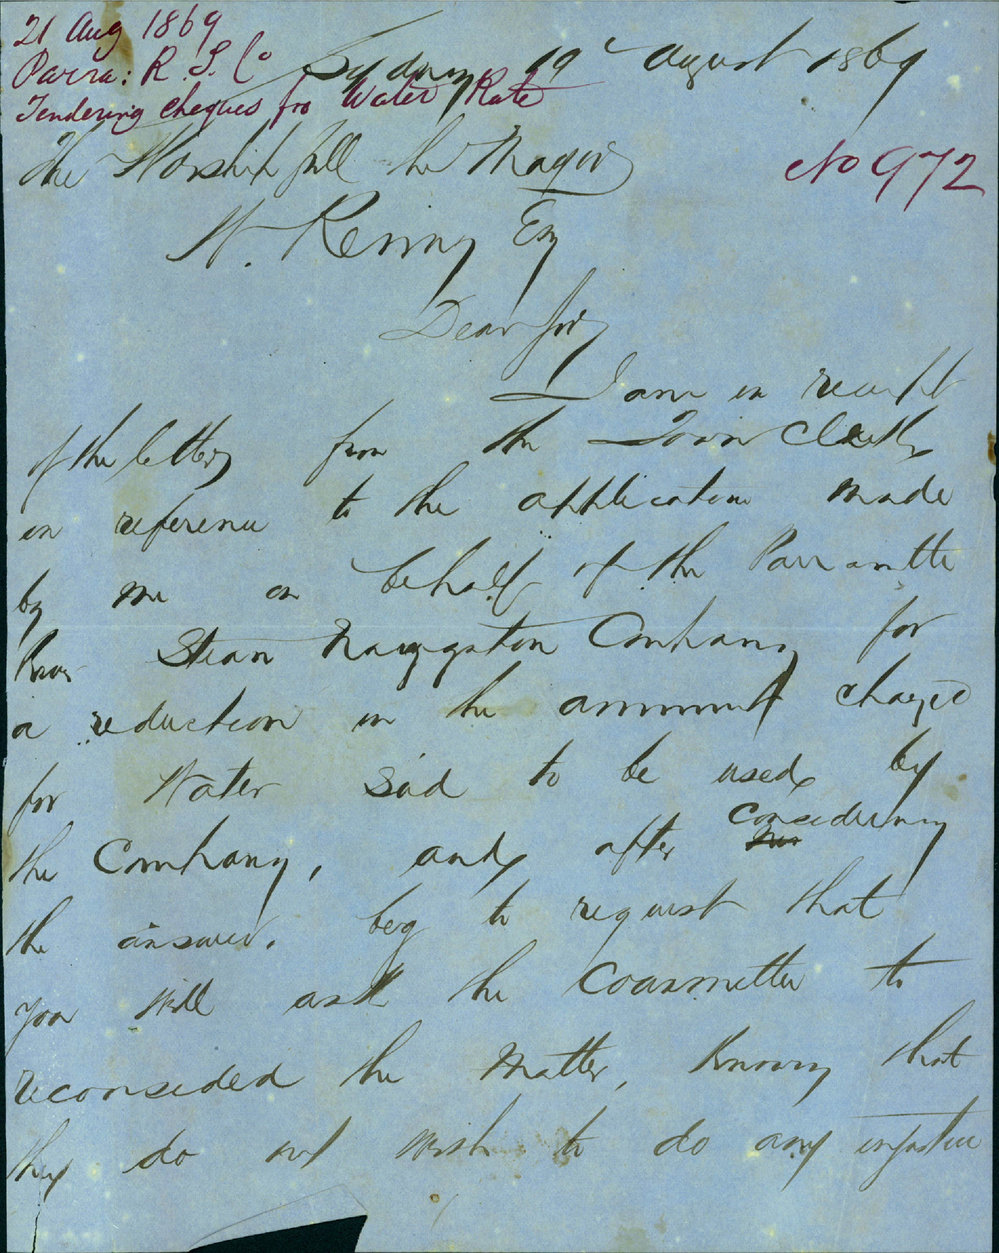 21 Aug 1869
Parra: R. S. Co
Tendering cheques for Water Rate
No 972
Sydney 19 August 1869
The Worshipfull the Mayor
W. Renny Esq
Dear Sir
I am in receipt
of the letter from the Town Clerk
in reference to the application made
by me on behalf of the Parramatta
River Steam Navigation Company for
a reduction in the amount charged
for Water said to be used by
the Company, and after considering
the answer, beg to request that
you will ask the Committee to
reconsided the Matter, Knowing that
they do not wish to do any injustice